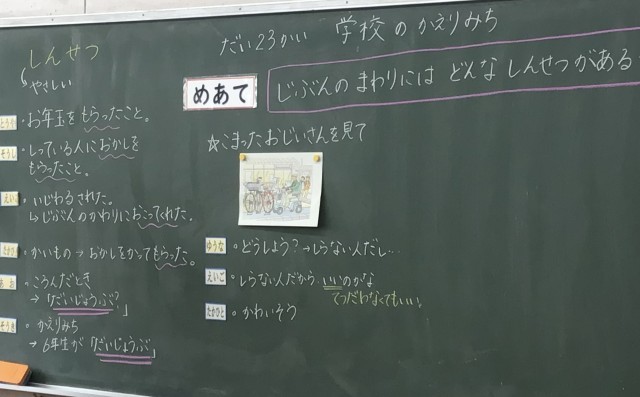 しんせつ
やさしい
お年玉をもらったこと。
しっている人におかしを
もらったこと。
いじわるされた。
→じぶんのかわりにおこってくれた。
かいもの→おかしをかってもらった。
ころんだとき
→「だいじょうぶ?」
かえりみち
→6年生が「だいじょうぶ」
だい23かい 学校のかえりみち
めあて
じぶんのまわりには どんなしんせつがある
☆こまったおじいさんを見て
ゆうな
どうしよう?→しらない人だし…
えいご
しらない人だから、いいのかな
てつだわなくてもいい。
たかひと
かわいそう